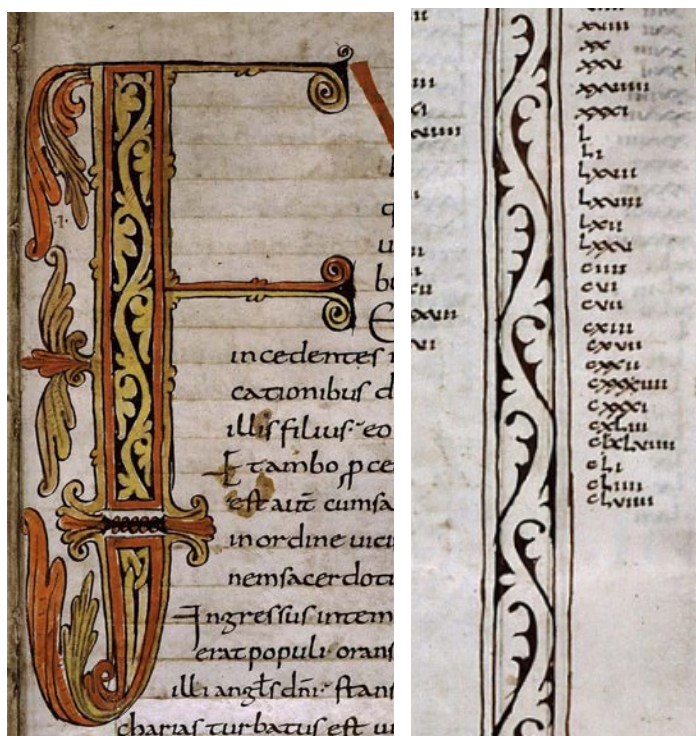 F
incedentes
cationibus d
illis filius· eo
Et ambo p ce
est aut̄ cum sa
in ordine uici
nem sacerdoti
Ingressus intem
erat populi· orans
illi angl̄s dn̄i· stans
charias turbatus est ui
xuiii
xx
xxu
xxuiiii
L
Li
Lxuiii
Lxuiiii
Lxii
Lxxu
ciiii
cui
cuii
cxiii
cxuii
cxxii
cxxxi
cxLiii
cLi
cLiiii
cLuiiii